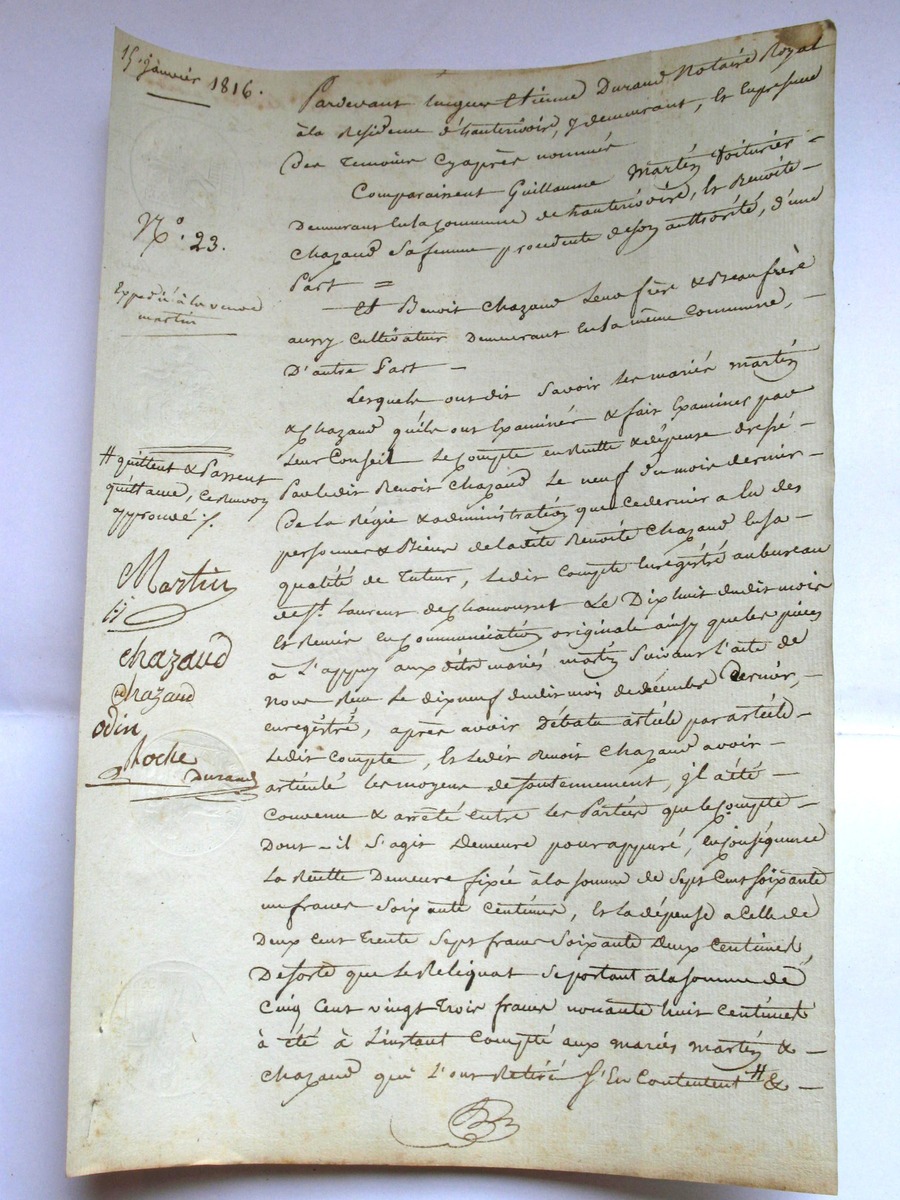 15. janvier 1816.
Pardevant hugues Etienne Durand Notaire Royal
à la Residence d'hauterivoir, y demeurant, Et En presence
Des Temoins Cyaprès nommés
Comparaissent Guillaume Martin Voiturier –
Demeurant En la Commune de hauterivoire, Et Benoite –
Chazaud Sa femme procedente de son authorité, d'une
Part =
Et Benoit Chazaud Leur frère & Beaufrère
aussy Cultivateur Demeurant En la même Commune, –
D'autre Part –
Lesquels ont dit Savoir Les mariés Martin
& Chazaud qu'ils ont Examinés & fait Examiner par
Leur Conseil Le Compte en Recette & dépense dressé –
Par ledit Benoit Chazaud Le neuf du mois dernier –
De la Régie & administration que ce dernier a Eu des
personne & Biens de ladite Benoite Chazaud En sa –
qualité de Tuteur, Ledit Compte Enregistré au bureau
de St. Laurent de Chamousset Le Dix huit dudit mois
Et Remis En Communication originale ainsy que les pièces
à L'appuy aux dits mariés Martin Suivant L'acte de
nous Reçu Le dix neuf dudit mois de décembre Dernier, –
enregistré, après avoir Débatu article par article –
Ledit Compte, Et Ledit Benoit Chazaud avoir –
articulé Les moyens de soutennement, il a été –
Convenu & arrêté entre Les Parties que le Compte –
Dont – il S'agit Demeure pour appuré, En Conséquence
La Recette Demeure fixée à la somme de Sept Cent soixante
un francs Soixante Centimes, Et la dépense a Celle de
Deux cent Trente Sept francs Soixante Deux Centimes,
De sorte que Le Reliquat Se portant à la somme de
Cinq Cent vingt Trois francs nonante huit Centimes
à été à L'instant Compté aux mariés Martin & –
Chazaud qui L'ont Retiré S'En Contentent # & –
N.º 23.
Expedié à la veuve
martin
# quittent & Passent
quittance, Ce Renvoy
approuvé ./.
Martin
Chazaud
Chazaud
odin
Roche
Durand